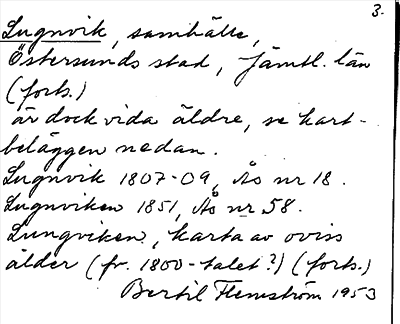 3.
Lugnvik, samhälle,
Östersunds stad, Jämtl. län
(forts.)
är dock vida äldre, se kart-
beläggen nedan.
Lugnvik 1807-09, Ås nr 18.
Lugnviken 1851, Ås nr 58.
Lungviken, karta av oviss
ålder (fr. 1800-talet?) (forts.)
Bertil Flemström 1953